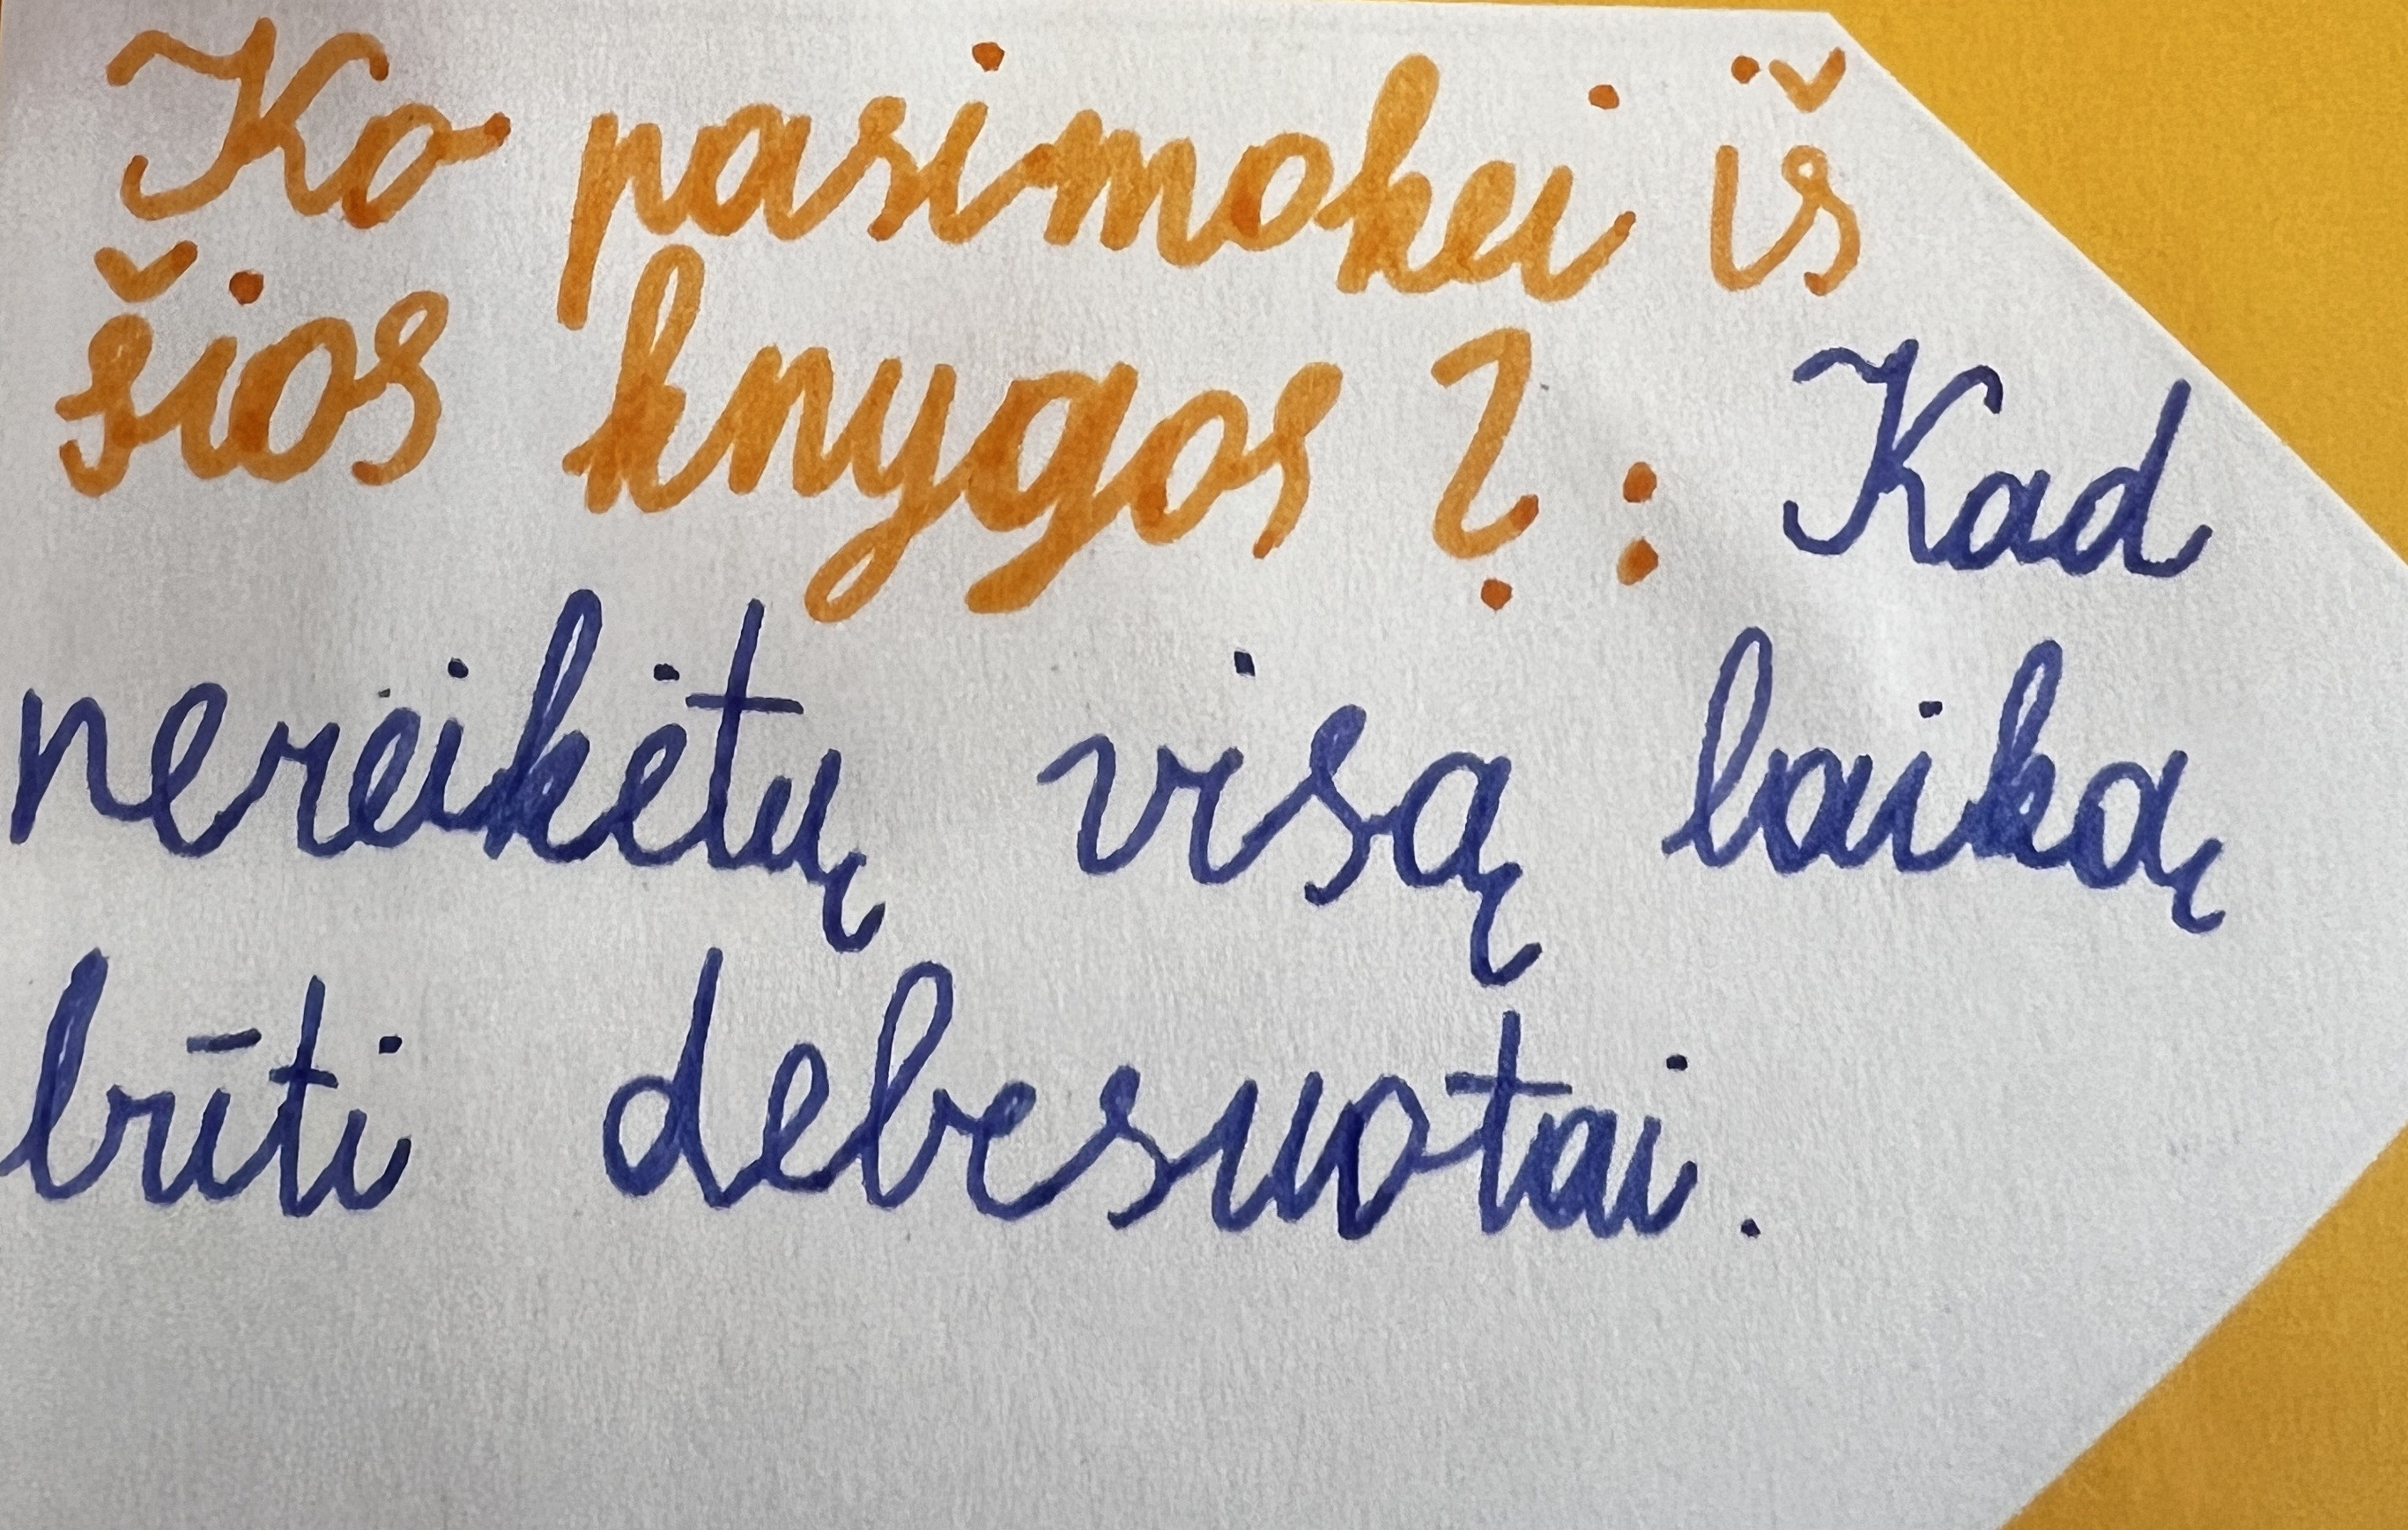 Ko pasimokei iš
šios knygos?: Kad
nereikėtų visą laiką
būti debesuotai.